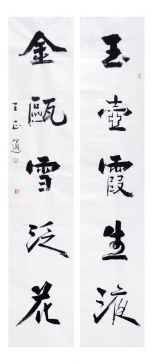 玉壺霞生液
金甌雪泛花
王正道